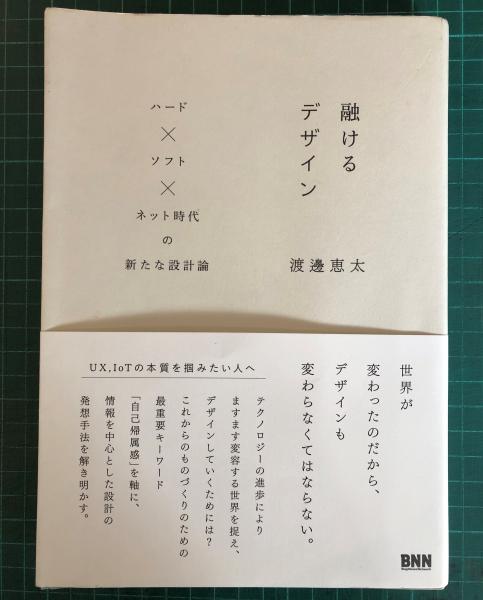 融ける
デザイン
渡邊恵太
ハード
×
ソフト
×
ネット時代
の
新たな設計論
世界が
変わったのだから、
デザインも
変わらなくてはならない。
UX,IoTの本質を掴みたい人へ
テクノロジーの進歩により
ますます変容する世界を捉え、
デザインしていくためには?
これからのものづくりのための
最重要キーワード
「自己帰属感」を軸に、
情報を中心とした設計の
発想手法を解き明かす。
BNN